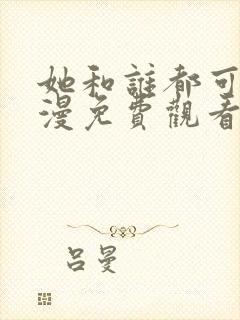 她和誰都可
漫免費觀看
呂曼